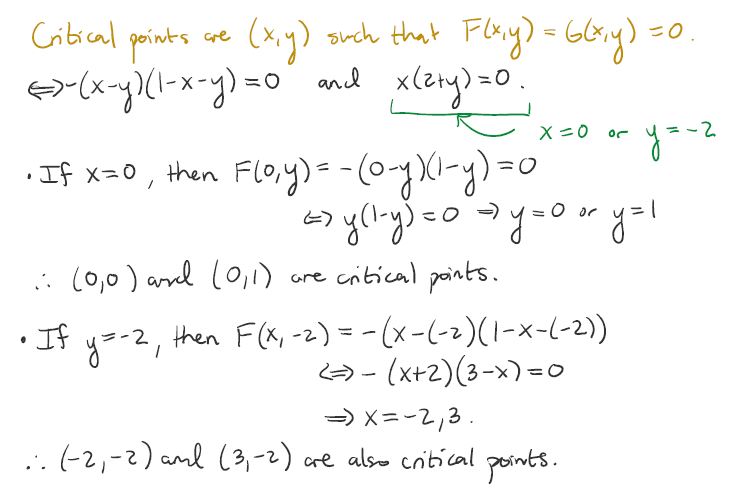 Critical points are (x,y) such that F(x,y) = G(x,y) = 0.
⇔ -(x-y)(1-x-y) = 0 and x(2+y) = 0.
x = 0 or y = -2
• If x=0, then F(0,y) = -(0-y)(1-y) = 0
⇔ y(1-y) = 0 ⇒ y = 0 or y = 1
∴ (0,0) and (0,1) are critical points.
• If y=-2, then F(x,-2) = -(x-(-2)(1-x-(-2))
⇔ -(x+2)(3-x) = 0
⇒ x = -2, 3.
∴ (-2,-2) and (3,-2) are also critical points.